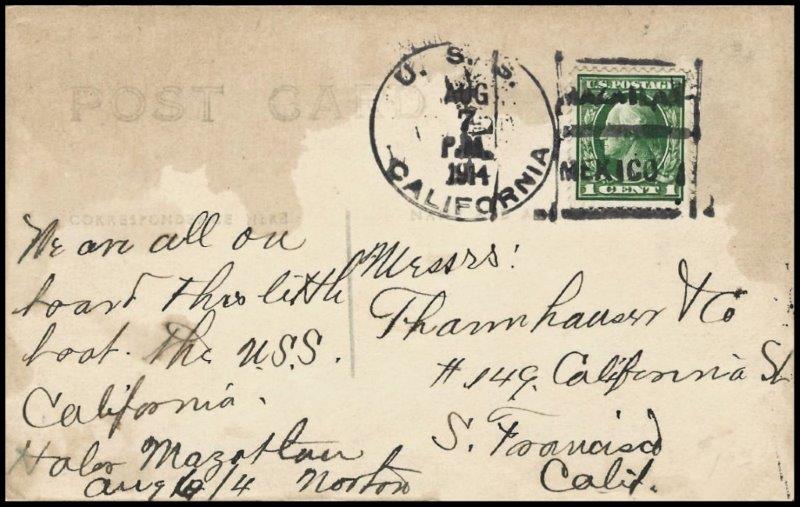 POST CARD
U. S. S.
AUG
7
P.M.
1914
CALIFORNIA
MAZATLAN
MEXICO
U.S. POSTAGE
1 CENT 1
CORRESPONDENCE HERE
We are all on
board this little
boat. The U.S.S.
California.
Mazatlan
Aug /4 Norton
Messrs:
Thannhauser & Co
#149. California St
S. Francisco
Calif.